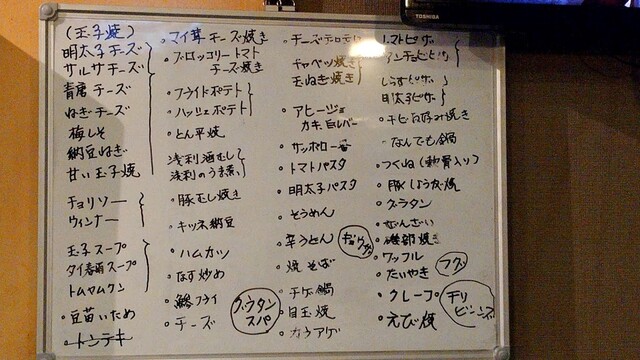 TOSHIBA
(玉子焼)
明太子チーズ
サルサチーズ
青唐チーズ
ねぎチーズ
梅しそ
納豆ねぎ
甘い玉子焼
チョリソー
ウィンナー
玉子スープ
タイ春雨スープ
トムヤムクン
・豆苗いため
・トンテキ
・マイ茸チーズ焼き
・ブロッコリートマト
チーズ焼き
・フライドポテト
・ハッシュポテト
・とん平焼
浅利酒むし
浅利のうま煮
・豚むし焼き
・キッネ納豆
・ハムカツ
・なす炒め
・鯵フライ
・チーズ
グウタン
スパ
・チーズ
キャベツ焼き
玉ねぎ焼き
・アヒージョ
カキ、白レバー
・サッポロ一番
・トマトパスタ
・明太子パスタ
・そうめん
・辛うどん
・焼そば
・チゲ鍋
・目玉焼
・カラアゲ
・トマトピザ
アンチョビピザ
しらすピザ
明太子ピザ
・チビお好み焼き
・なんでも鍋
・つくね(軟骨入り)
・豚しょうが焼
・グラタン
・ぜんざい
・磯部焼き
・ワッフル
・たいやき
・クレープ
・えび焼
チリ
ビーンズ